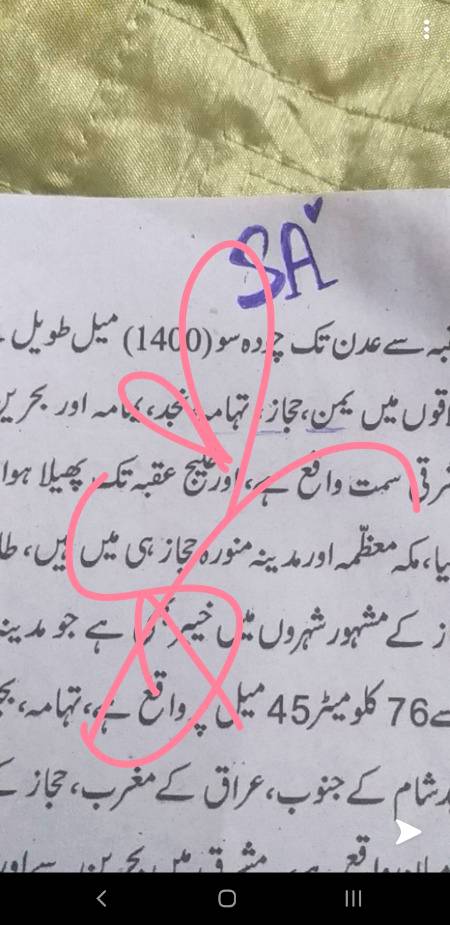 SA
قبہ سے عدن تک چودہ سو (1400) میل طویل
لاقوں میں یمن، حجاز، تہامہ، نجد، یمامہ اور بحرین
شرقی سمت واقع ہے، اور خلیج عقبہ تک پھیلا ہوا
یا، مکہ معظّمہ اور مدینہ منورہ حجاز ہی میں ہیں، طا
ز کے مشہور شہروں میں خیبر بھی ہے جو مدینہ
سے 76 کلومیٹر 45 میل پر واقع ہے، تہامہ، بحر
شام کے جنوب، عراق کے مغرب، حجاز کے
واقع ہے مشرق میں بحرین سے اور